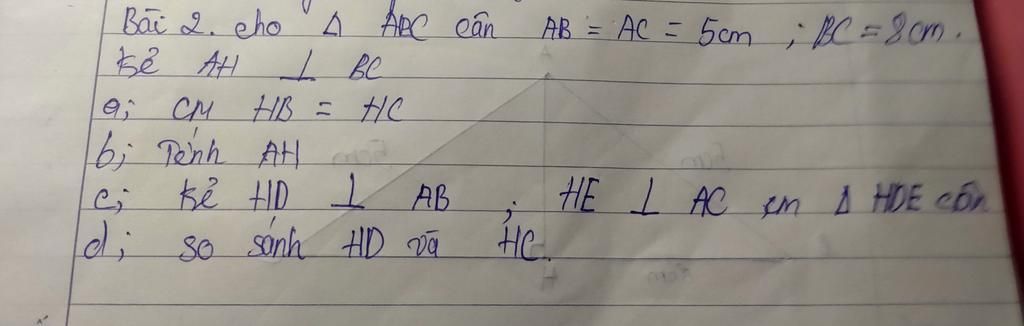 Bài 2. cho Δ ABC cân AB = AC = 5cm ; BC = 8cm.
kẻ AH ⊥ BC
a; CM HB = HC
b; Tính AH
c; kẻ HD ⊥ AB ; HE ⊥ AC cm Δ HDE cân
d; so sánh HD và HC.